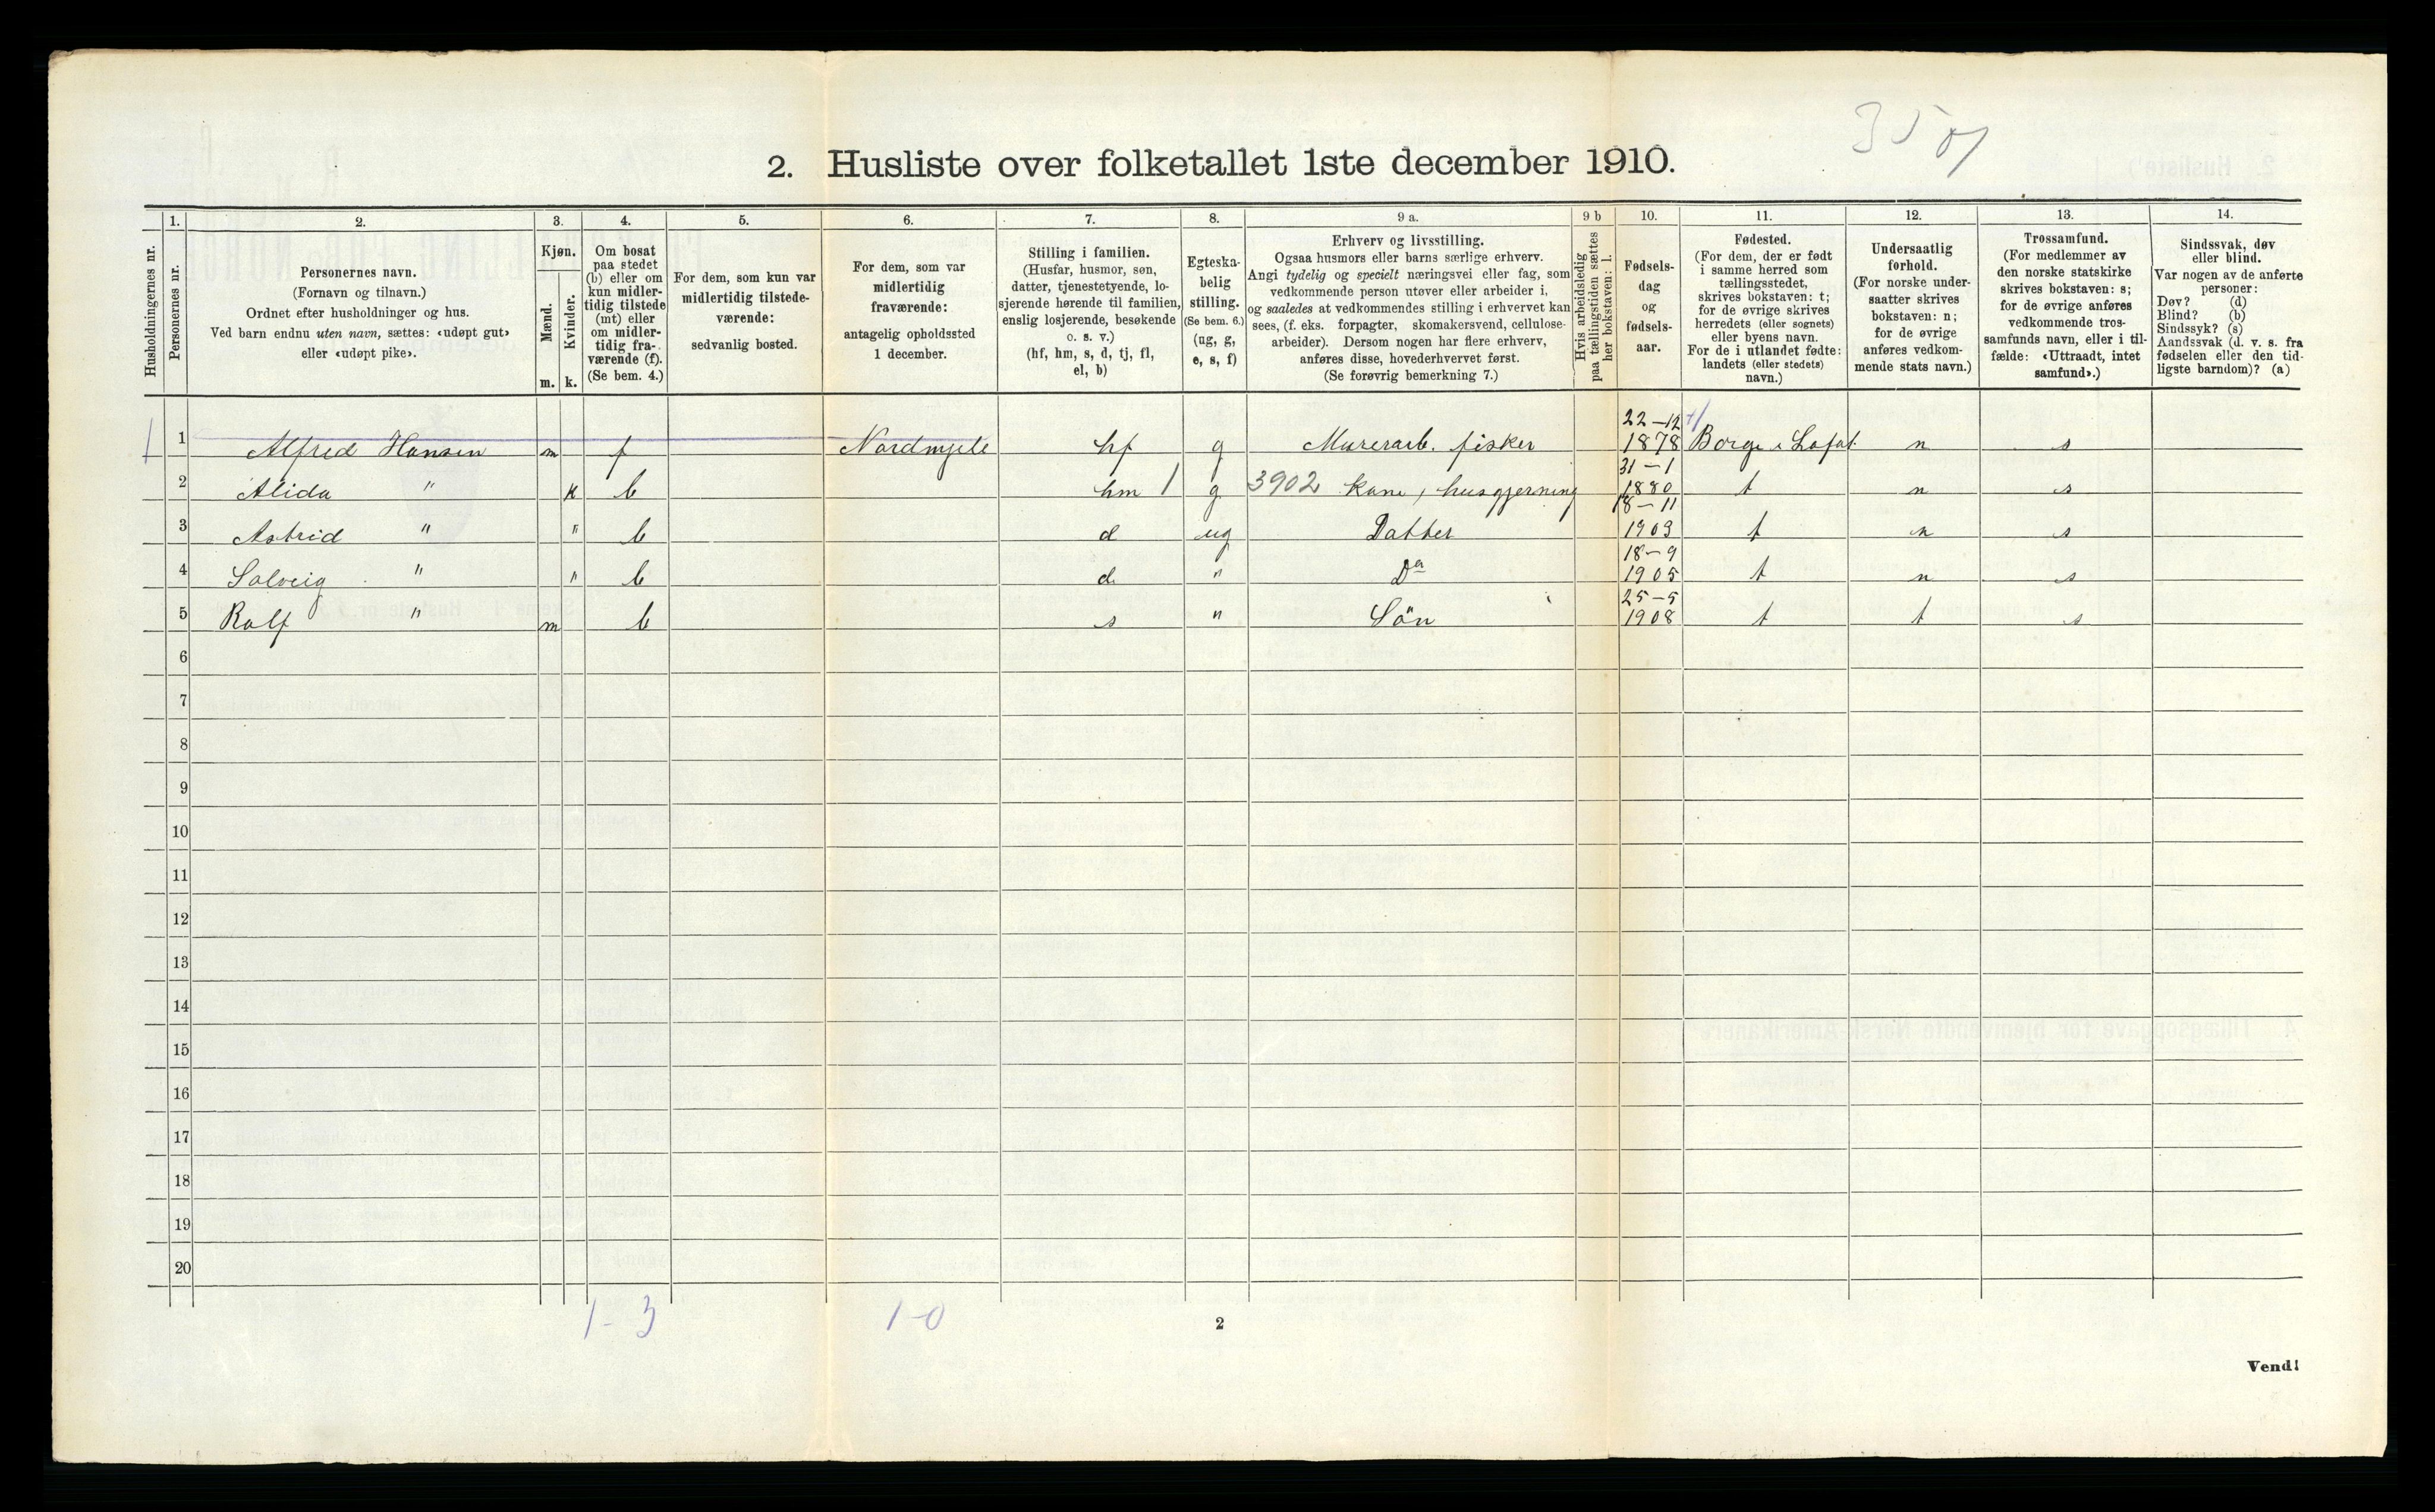 35
2. Husliste over folketallet 1ste december 1910.
Husholdningernes nr.
1. Personernes nr.
2. Personernes navn.
(Fornavn og tilnavn.)
Ordnet efter husholdninger og hus.
Ved barn endnu uten navn, sættes: «udøpt gut»
eller «udøpt pike».
3. Kjøn.
Mænd. m.
Kvinder. k.
4. Om bosat
paa stedet
(b) eller om
kun midler-
tidig tilstede
(mt) eller
om midler-
tidig fra-
værende (f).
(Se bem. 4.)
5. For dem, som kun var
midlertidig tilstede-
værende:
sedvanlig bosted.
6. For dem, som var
midlertidig
fraværende:
antagelig opholdssted
1 december.
7. Stilling i familien.
(Husfar, husmor, søn,
datter, tjenestetyende, lo-
sjerende hørende til familien,
enslig losjerende, besøkende
o. s. v.)
(hf, hm, s, d, tj, fl,
el, b)
8. Egteska-
belig
stilling.
(Se bem. 6.)
(ug, g,
e, s, f)
9 a. Erhverv og livsstilling.
Ogsaa husmors eller barns særlige erhverv.
Angi tydelig og specielt næringsvei eller fag, som
vedkommende person utøver eller arbeider i,
og saaledes at vedkommendes stilling i erhvervet kan
sees, (f. eks. forpagter, skomakersvend, cellulose-
arbeider). Dersom nogen har flere erhverv,
anføres disse, hovederhvervet først.
(Se forøvrig bemerkning 7.)
9 b Hvis arbeidsledig
paa tællingstiden sættes
her bokstaven: l.
10. Fødsels-
dag
og
fødsels-
aar.
11. Fødested.
(For dem, der er født
i samme herred som
tællingsstedet,
skrives bokstaven: t;
for de øvrige skrives
herredets (eller sognets)
eller byens navn.
For de i utlandet fødte:
landets (eller stedets)
navn.)
12. Undersaatlig
forhold.
(For norske under-
saatter skrives
bokstaven: n;
for de øvrige
anføres vedkom-
mende stats navn.)
13. Trossamfund.
(For medlemmer av
den norske statskirke
skrives bokstaven: s;
for de øvrige anføres
vedkommende tros-
samfunds navn, eller i til-
fælde: «Uttraadt, intet
samfund».)
14. Sindssvak, døv
eller blind.
Var nogen av de anførte
personer:
Døv? (d)
Blind? (b)
Sindssyk? (s)
Aandssvak (d. v. s. fra
fødselen eller den tid-
ligste barndom)? (a)
1 1 Alfred Hansen m f Nordmjele hf g Murerarb. fisker 22-12 1878 Borge i Lofot. n s
2 Alida " k b hm 1 g 3902 kone, husgjerning 31-1 1880 t n s
3 Astrid " " b d ug Datter 18-11 1903 t n s
4 Solveig " " b d " Da 18-9 1905 t n s
5 Rolf " m b s " Sön 25-5 1908 t t s
6
7
8
9
10
11
12
13
14
15
16
17
18
19
20
1-3 1-0
2
Vend!